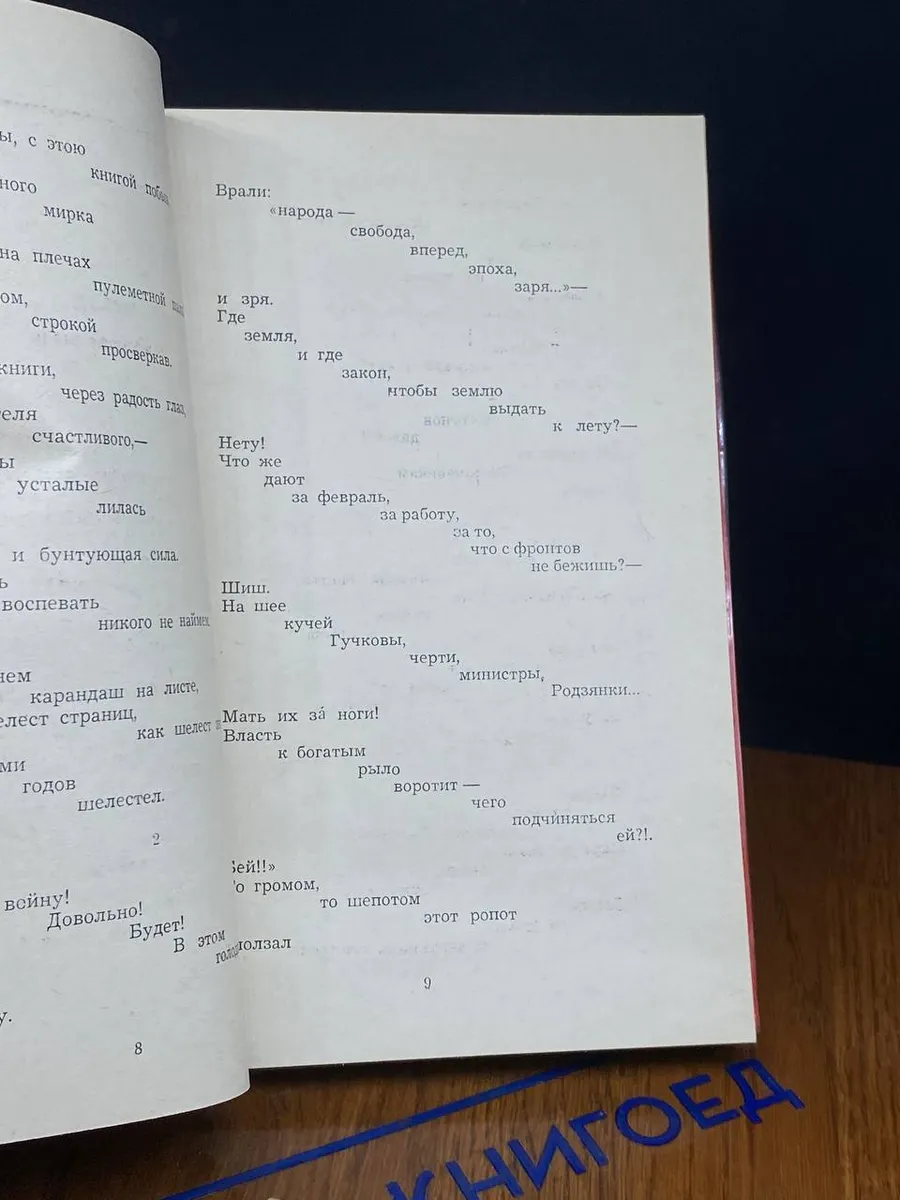 ы, с этою
книгой
ного
мирка
на плечах
пулеметной
ом,
строкой
просверкав.
книги,
через радость глаз,
теля
счастливого,—
ы
усталые
лилась
и бунтующая сила.
ь
воспевать
никого не наймем
нем
карандаш на листе,
елест страниц,
как шелест
ми
годов
шелестел.
2
войну!
Довольно!
Будет!
В этом
у.
8
Врали:
«народа —
свобода,
вперед,
эпоха,
заря...»—
и зря.
Где
земля,
и где
закон,
чтобы землю
выдать
к лету?—
Нету!
Что же
дают
за февраль,
за работу,
за то,
что с фронтов
не бежишь?—
Шиш.
На шее
кучей
Гучковы,
черти,
министры,
Родзянки...
Мать их за́ ноги!
Власть
к богатым
рыло
воротит —
чего
подчиняться
ей?!.
Бей!!»
То громом,
то шепотом
этот ропот
ползал
9
КНИГОЕД